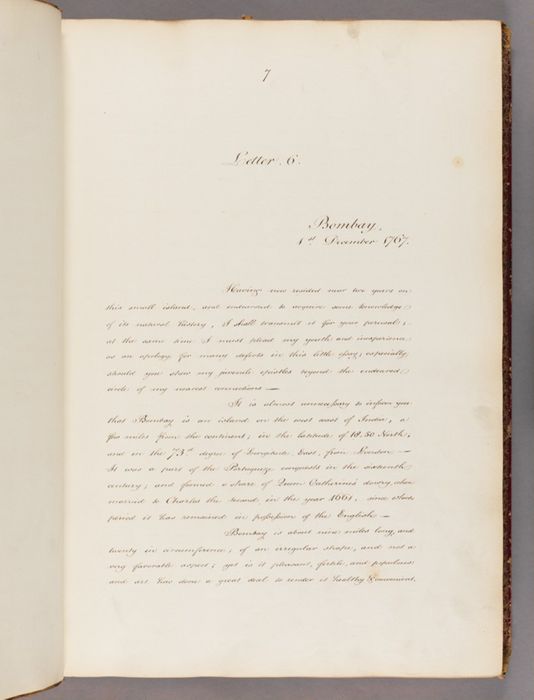 7
Letter. 6.
Bombay,
1st December 1767.
Having now resided near two years on
this small island, and endeavored to acquire some knowledge
of its natural history, I shall transmit it for your perusal;
at the same time I must plead my youth and inexperience
as an apology for many defects in this little essay; especially
should you shew my juvenile epistles beyond the endeared
circle of my nearest connections —
It is almost unnecessary to inform you
that Bombay is an island on the west coast of India, a
few miles from the continent; in the latitude of 18.50 North;
and in the 73d degree of Longitude East, from London —
It was a part of the Portugueze conquests in the sixteenth
century; and formed a share of Queen Catharine's dowry, when
married to Charles the second, in the year 1661, since which
period it has remained in possession of the English —
Bombay is about nine miles long, and
twenty in circumference; of an irregular shape, and not a
very favorable aspect; yet is it pleasant, fertile, and populous
and art has done a great deal to render it healthy & convenient,